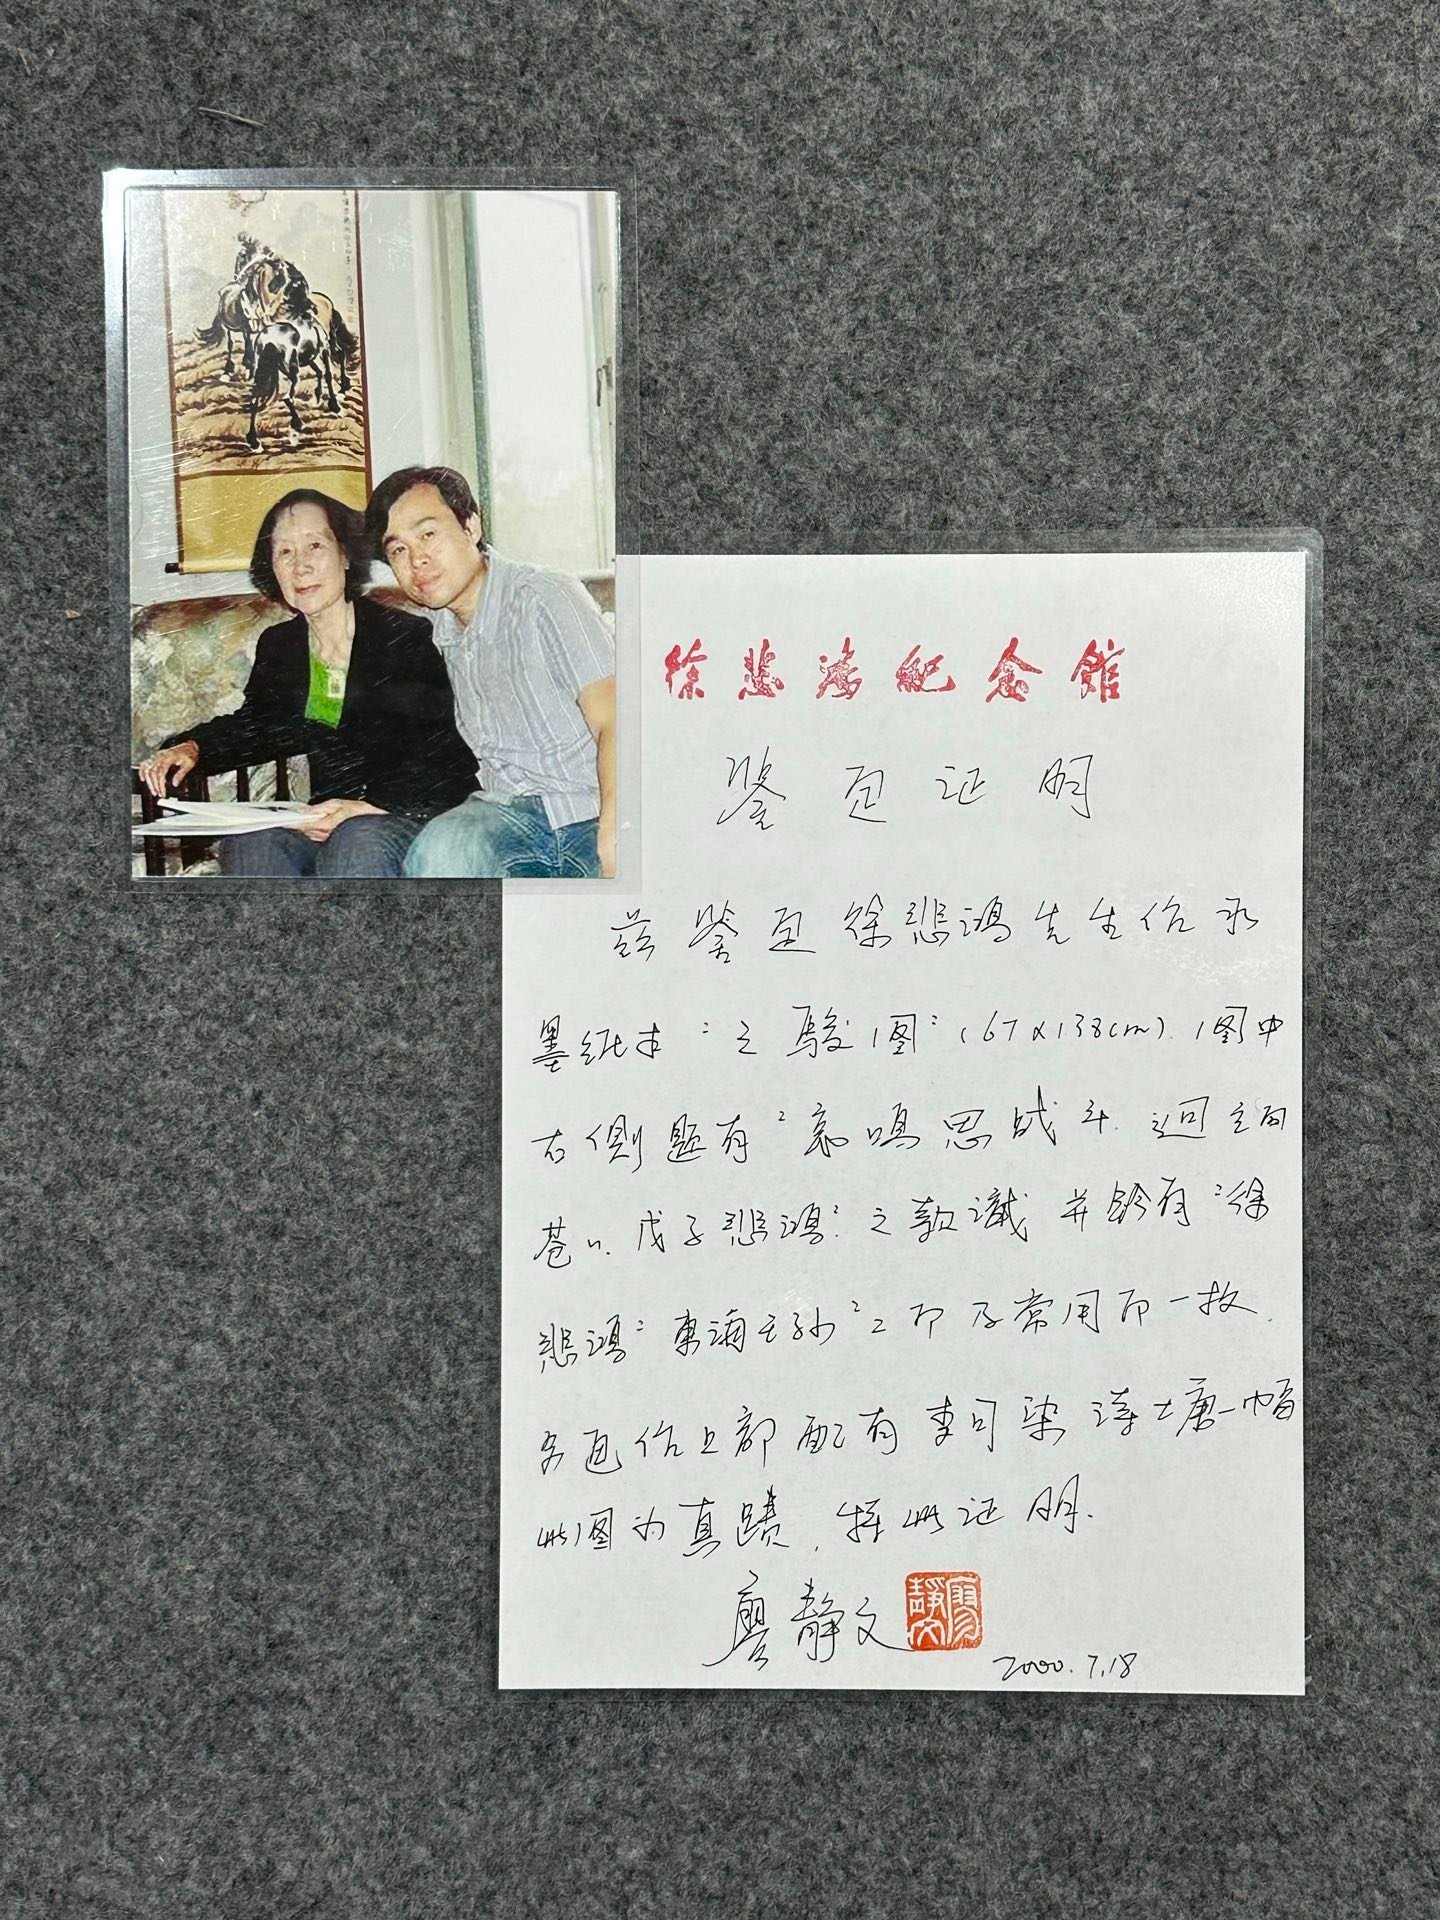 徐悲鸿纪念馆
鉴定证明
兹鉴定徐悲鸿先生作水
墨纸本"之骏图"(67x138cm).图中
右侧题有"哀鸣思战斗.迥立向
苍苍.戊子悲鸿"之款識并鈐有"徐
悲鸿""東海王孙"二印及常用印一枚.
另画作上部配有李可染詩堂一幅
此图为真蹟,特此证明.
廖静文
廖靜文
2000.7.18